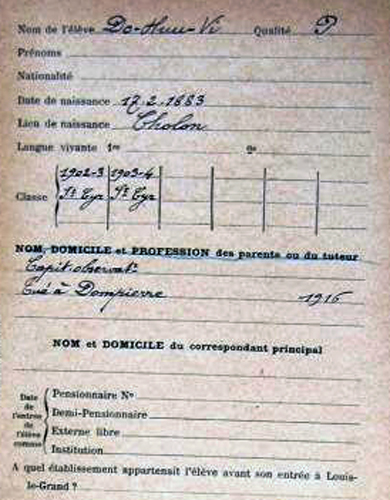 Nom de l'élève Do-Huu-Vi Qualité P
Prénoms
Nationalité
Date de naissance 17.2.1883
Lieu de naissance Cholon
Langue vivante 1re 2e
1902-3 1903-4
Classe St Cyr St Cyr
NOM, DOMICILE et PROFESSION des parents ou du tuteur
Capit. observat.
Tué à Dompierre 1916
NOM et DOMICILE du correspondant principal
Date de l'entrée de l'élève comme
Pensionnaire No
Demi-Pensionnaire
Externe libre
Institution
A quel établissement appartenait l'élève avant son entrée à Louis-
le-Grand ?